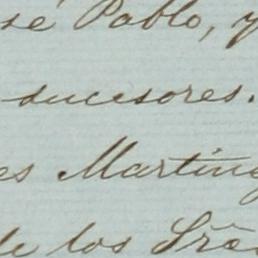 sé Pablo, y
sucesores.
es Martin
de los Sres